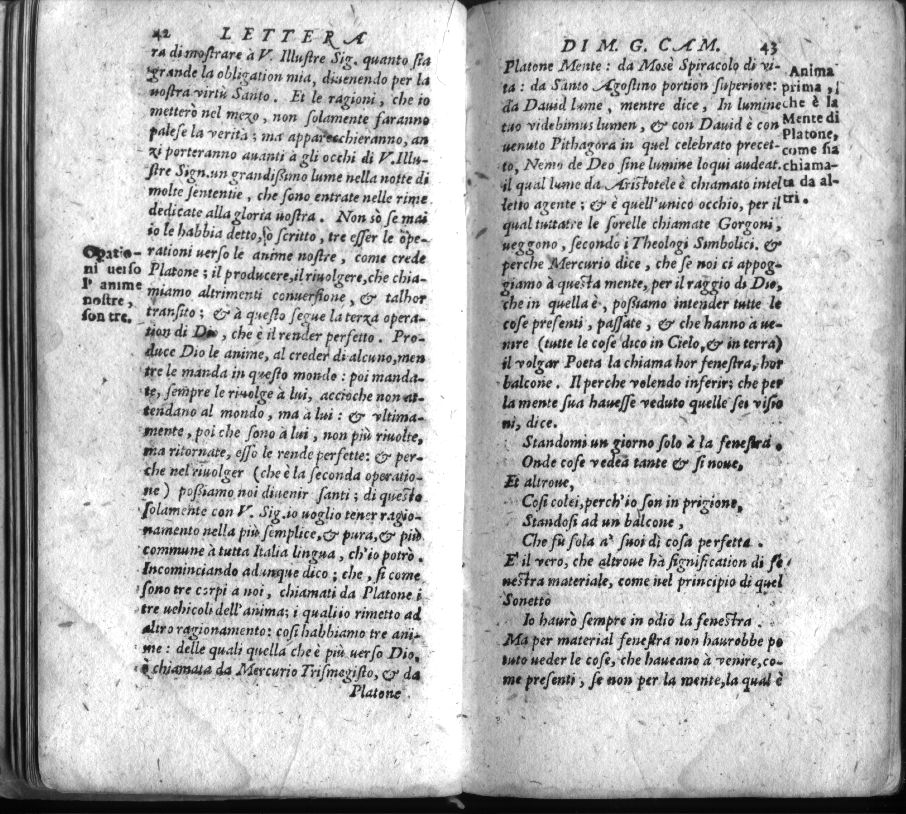 42 LETTERA
ra di mostrare à V. Illustre Sig. quanto sia
grande la obligation mia, diuenendo per la
uostra virtù Santo. Et le ragioni, che io
metterò nel mezo, non solamente faranno
palese la verità; ma apparecchieranno, an
zi porteranno auanti à gli occhi di V. Illu-
stre Sign. un grandissimo lume nella notte di
molte sententie, che sono entrate nelle rime
dedicate alla gloria uostra. Non sò se mai
io le habbia detto, ò scritto, tre esser le ope-
rationi uerso le anime nostre, come crede
Platone; il producere, il riuolgere, che chia-
miamo altrimenti conuersione, & talhor
transito; & à questo segue la terza opera-
tion di Dio, che è il render perfetto. Pro-
duce Dio le anime, al creder di alcuno, men
tre le manda in questo mondo: poi manda-
te, sempre le riuolge à lui, accioche non at-
tendano al mondo, ma à lui: & vltima-
mente, poi che sono à lui, non più riuolte,
ma ritornate, esso le rende perfette: & per-
che nel riuolger (che è la seconda operatio-
ne) possiamo noi diuenir santi; di questo
solamente con V. Sig. io uoglio tener ragio-
namento nella più semplice, & pura, & più
commune à tutta Italia lingua, ch'io potrò.
Incominciando adunque dico; che, si come
sono tre corpi a noi, chiamati da Platone i
tre uehicoli dell'anima; i quali io rimetto ad
altro ragionamento: così habbiamo tre ani-
me: delle quali quella che è più uerso Dio,
è chiamata da Mercurio Trismegisto, & da
Platone
Opatio-
ni uerso
l'anime
nostre,
son tre.
DI M. G. CAM. 43
Platone Mente: da Mosè Spiracolo di vi-
ta: da Santo Agostino portion superiore:
da Dauid lume, mentre dice, In lumine
tuo videbimus lumen, & con Dauid è con
uenuto Pithagora in quel celebrato precet-
to, Nemo de Deo sine lumine loqui audeat.
il qual lume da Aristotele è chiamato intel
letto agente; & è quell'unico occhio, per il
qual tutta tre le sorelle chiamate Gorgoni,
ueggono, secondo i Theologi Simbolici. &
perche Mercurio dice, che se noi ci appog-
giamo à questa mente, per il raggio di Dio,
che in quella è, possiamo intender tutte le
cose presenti, passate, & che hanno à ue-
nire (tutte le cose dico in Cielo, & in terra)
il volgar Poeta la chiama hor fenestra, hor
balcone. Il perche volendo inferir; che per
la mente sua hauesse veduto quelle sei visio
ni, dice.
Standomi un giorno solo à la fenestra.
Onde cose vedea tante & sì noue,
Et altroue,
Così colei, perch'io son in prigione,
Standosi ad un balcone,
Che fù sola a' suoi dì cosa perfetta.
E il vero, che altroue hà signification di fe
nestra materiale, come nel principio di quel
Sonetto
Io haurò sempre in odiò la fenestra.
Ma per material fenestra non haurobbe po
tuto ueder le cose, che haueano à venire, co-
me presenti, se non per la mente, la qual è
Anima
prima,
che è la
Mente di
Platone,
come sia
chiama-
ta da al-
tri.